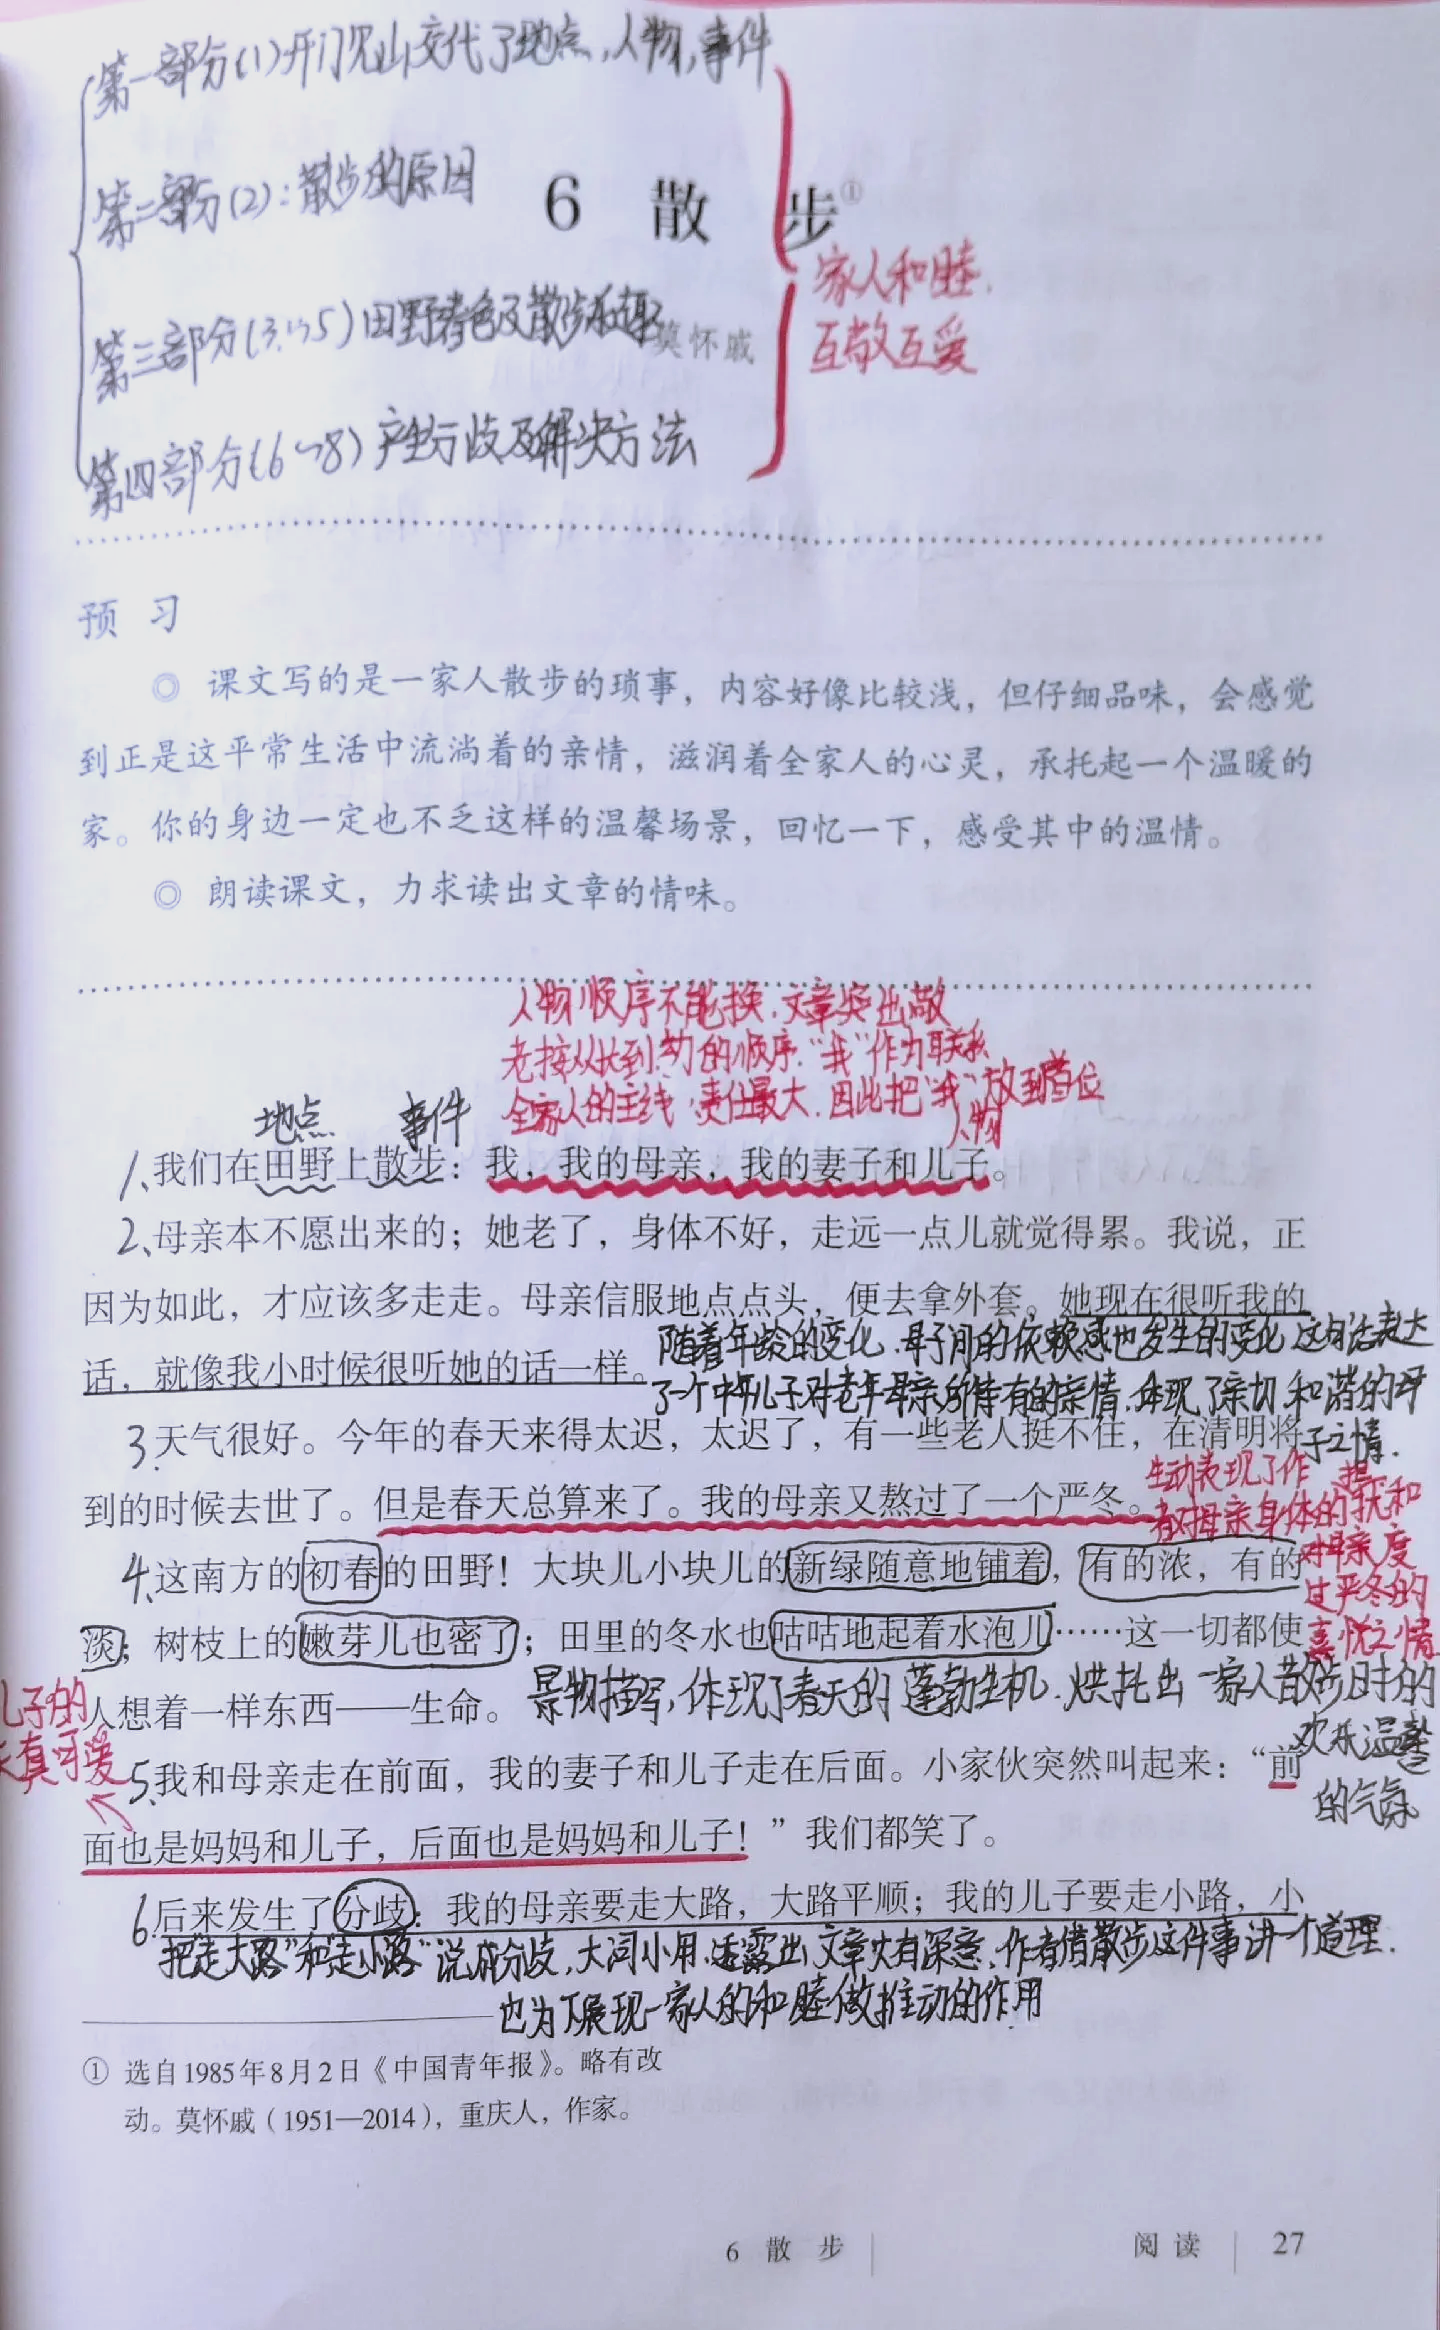 第一部分(1)开门见山交代了地点,人物,事件
第二部分(2):散步的原因
6 散 步①
家人和睦.
互敬互爱
第三部分(3~5)田野春色及散步乐趣
莫怀戚
第四部分(6~8)产生分歧及解决方法
预 习
◎ 课文写的是一家人散步的琐事，内容好像比较浅，但仔细品味，会感觉
到正是这平常生活中流淌着的亲情，滋润着全家人的心灵，承托起一个温暖的
家。你的身边一定也不乏这样的温馨场景，回忆一下，感受其中的温情。
◎ 朗读课文，力求读出文章的情味。
人物顺序不能换.文章突出敬
老按从长到幼的顺序."我"作为联系
全家人的主线,责任最大.因此把"我"放到首位
地点 事件 人物
1、我们在田野上散步：我，我的母亲，我的妻子和儿子。
2、母亲本不愿出来的；她老了，身体不好，走远一点儿就觉得累。我说，正
因为如此，才应该多走走。母亲信服地点点头，便去拿外套。她现在很听我的
话，就像我小时候很听她的话一样。
随着年龄的变化.母子间的依赖感也发生的变化.这句话表达
了一个中年儿子对老年母亲所特有的亲情.体现了亲切和谐的母
子之情.
3.天气很好。今年的春天来得太迟，太迟了，有一些老人挺不住，在清明将
到的时候去世了。但是春天总算来了。我的母亲又熬过了一个严冬。
生动表现了作
者对母亲身体的担忧和
对母亲度
过严冬的
喜悦之情
4、这南方的初春的田野！大块儿小块儿的新绿随意地铺着，有的浓，有的
淡；树枝上的嫩芽儿也密了；田里的冬水也咕咕地起着水泡儿……这一切都使
人想着一样东西——生命。
景物描写,体现了春天的蓬勃生机.烘托出一家人散步时的
欢乐温馨
的气氛
儿子的
天真可爱
5、我和母亲走在前面，我的妻子和儿子走在后面。小家伙突然叫起来：“前
面也是妈妈和儿子，后面也是妈妈和儿子！”我们都笑了。
6.后来发生了分歧：我的母亲要走大路，大路平顺；我的儿子要走小路，小
把"走大路"和"走小路"说成分歧,大词小用.透露出文章大有深意、作者借散步这件事讲一个道理.
也为下展现一家人的和睦做推动的作用
① 选自1985年8月2日《中国青年报》。略有改
动。莫怀戚（1951—2014），重庆人，作家。
6 散 步
阅读 27